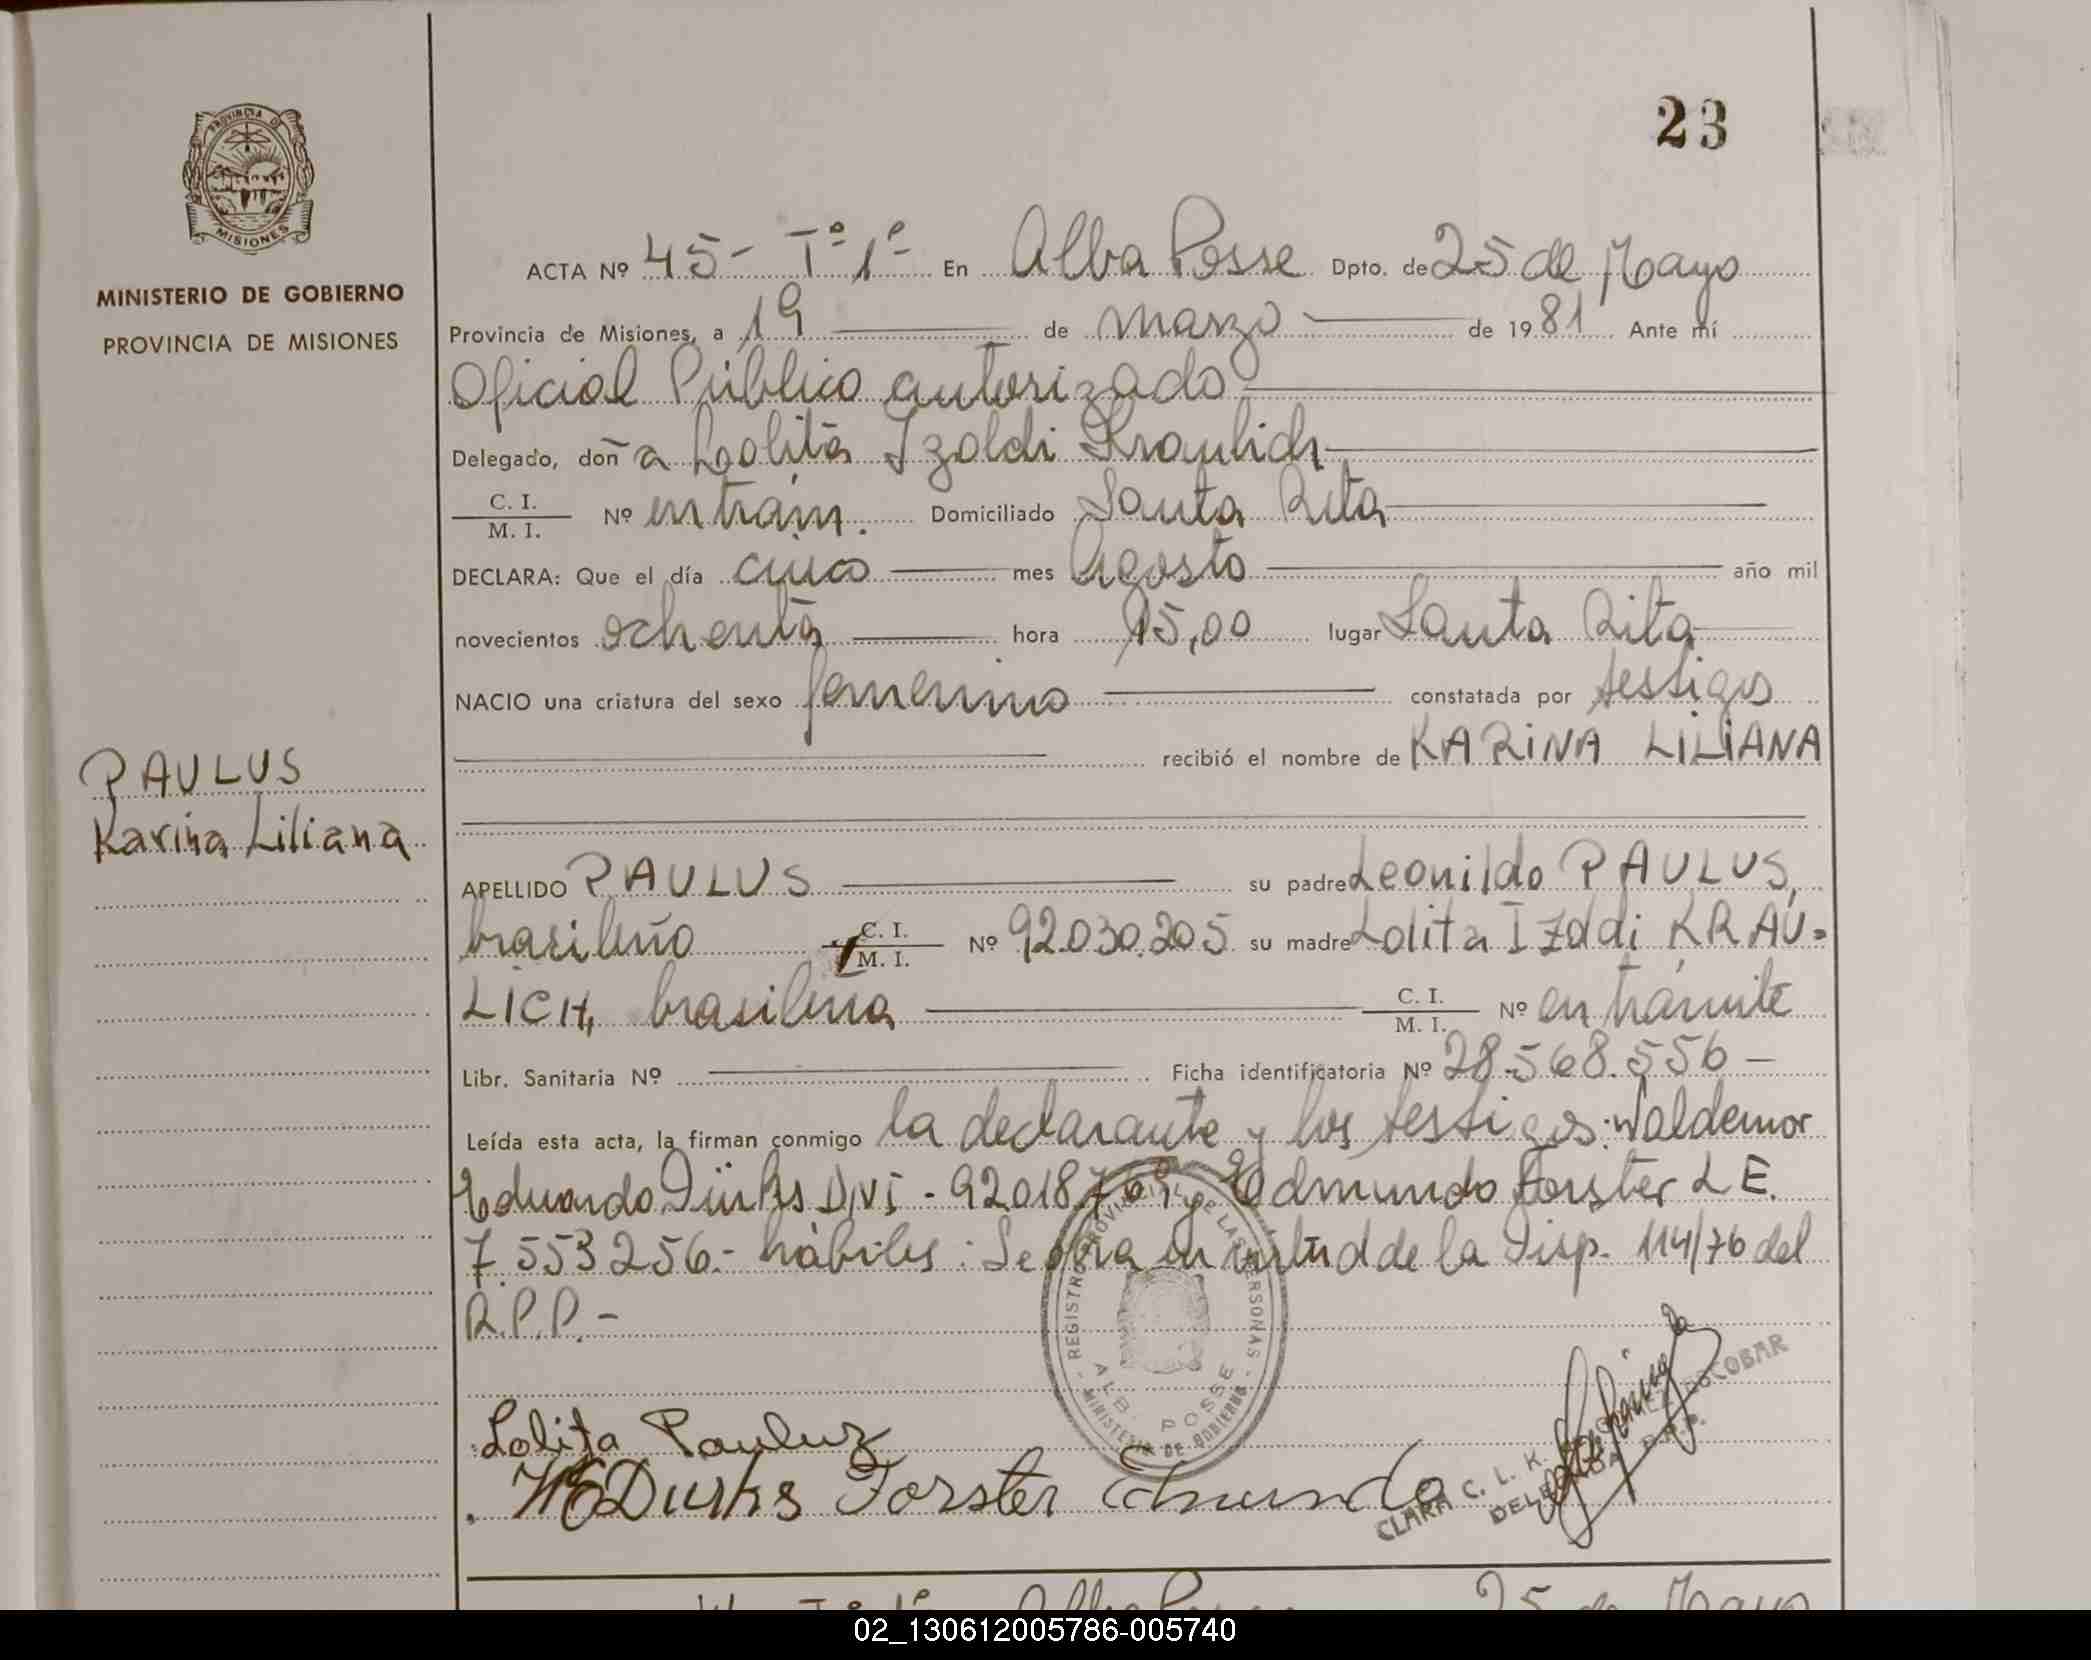 23
PROVINCIA DE
MISIONES
MINISTERIO DE GOBIERNO
PROVINCIA DE MISIONES
PAULUS
Karina Liliana
ACTA Nº 45- Tº 1º- En Alba Posse Dpto. de 25 de Mayo
Provincia de Misiones, a 19 de marzo de 1981 Ante mí
Oficial Público autorizado
Delegado, don a Lolita Izoldi Kraulich
C. I.
M. I. Nº en trám. Domiciliado Santa Rita
DECLARA: Que el día cinco mes Agosto año mil
novecientos ochenta hora 15,00 lugar Santa Rita
NACIO una criatura del sexo femenino constatada por testigos
recibió el nombre de KARINA LILIANA
APELLIDO PAULUS su padre Leonildo PAULUS,
brasileño C. I. M. I. Nº 92.030.205 su madre Lolita Izoldi KRAU=
LICH, brasileña C. I. M. I. Nº en trámite
Libr. Sanitaria Nº Ficha identificatoria Nº 28.568.556 -
Leída esta acta, la firman conmigo la declarante y los testigos: Waldemar
Eduardo Dürks DNI - 92.018.769 y Edmundo Forster L E.
7.553.256.- hábiles: Se obra en virtud de la Disp. 114/76 del
R.P.P. -
REGISTRO PROVINCIAL DE LAS PERSONAS
ALB. POSSE
MINISTERIO DE GOBIERNO
Lolita Pauluz
WEDurks Forster Edmundo
CLARA C. L. K. ESCOBAR
DELEGADA R.P.P.
Tº 1º Alba Posse 25 de Mayo
02_130612005786-005740